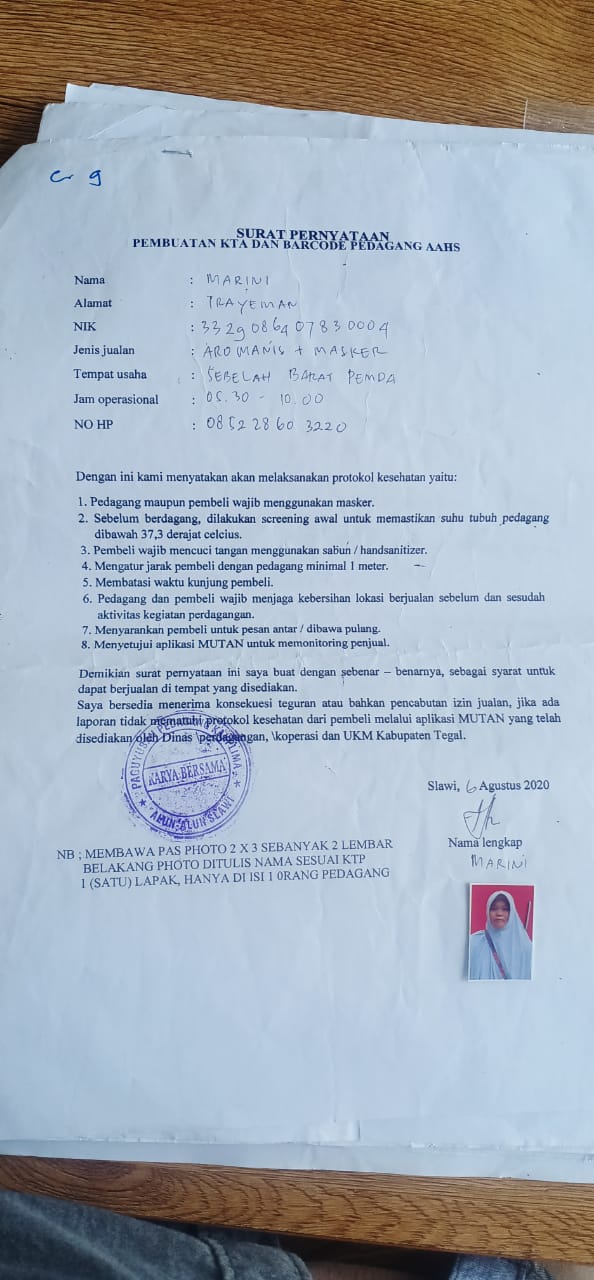 Cr 9
SURAT PERNYATAAN
PEMBUATAN KTA DAN BARCODE PEDAGANG AAHS
Nama : MARINI
Alamat : TRAYEMAN
NIK : 3329086407830004
Jenis jualan : AROMANIS + MASKER
Tempat usaha : SEBELAH BARAT PEMDA
Jam operasional : 05.30 - 10.00
NO HP : 0852 2860 3220
Dengan ini kami menyatakan akan melaksanakan protokol kesehatan yaitu:
1. Pedagang maupun pembeli wajib menggunakan masker.
2. Sebelum berdagang, dilakukan screening awal untuk memastikan suhu tubuh pedagang
dibawah 37,3 derajat celcius.
3. Pembeli wajib mencuci tangan menggunakan sabun / handsanitizer.
4. Mengatur jarak pembeli dengan pedagang minimal 1 meter.
5. Membatasi waktu kunjung pembeli.
6. Pedagang dan pembeli wajib menjaga kebersihan lokasi berjualan sebelum dan sesudah
aktivitas kegiatan perdagangan.
7. Menyarankan pembeli untuk pesan antar / dibawa pulang.
8. Menyetujui aplikasi MUTAN untuk memonitoring penjual.
Demikian surat pernyataan ini saya buat dengan sebenar – benarnya, sebagai syarat untuk
dapat berjualan di tempat yang disediakan.
Saya bersedia menerima konsekuesi teguran atau bahkan pencabutan izin jualan, jika ada
laporan tidak mematuhi protokol kesehatan dari pembeli melalui aplikasi MUTAN yang telah
disediakan oleh Dinas \perdagangan, \koperasi dan UKM Kabupaten Tegal.
KARYA BERSAMA
ALUN-ALUN SLAWI
Slawi, 6 Agustus 2020
Nama lengkap
MARINI
NB ; MEMBAWA PAS PHOTO 2 X 3 SEBANYAK 2 LEMBAR
BELAKANG PHOTO DITULIS NAMA SESUAI KTP
1 (SATU) LAPAK, HANYA DI ISI 1 0RANG PEDAGANG